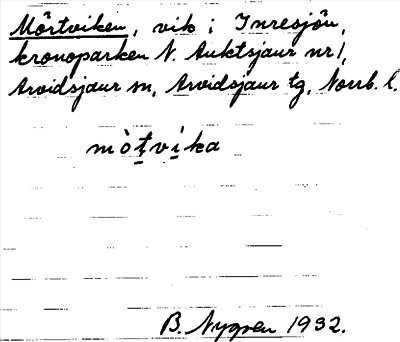 Mörtviken, vik i Inresjön,
kronoparken N. Auktsjaur nr 1,
Arvidsjaur sn, Arvidsjaur tg, Norrb. l.
mòt̠vi̠ka
B. Nygren 1932.